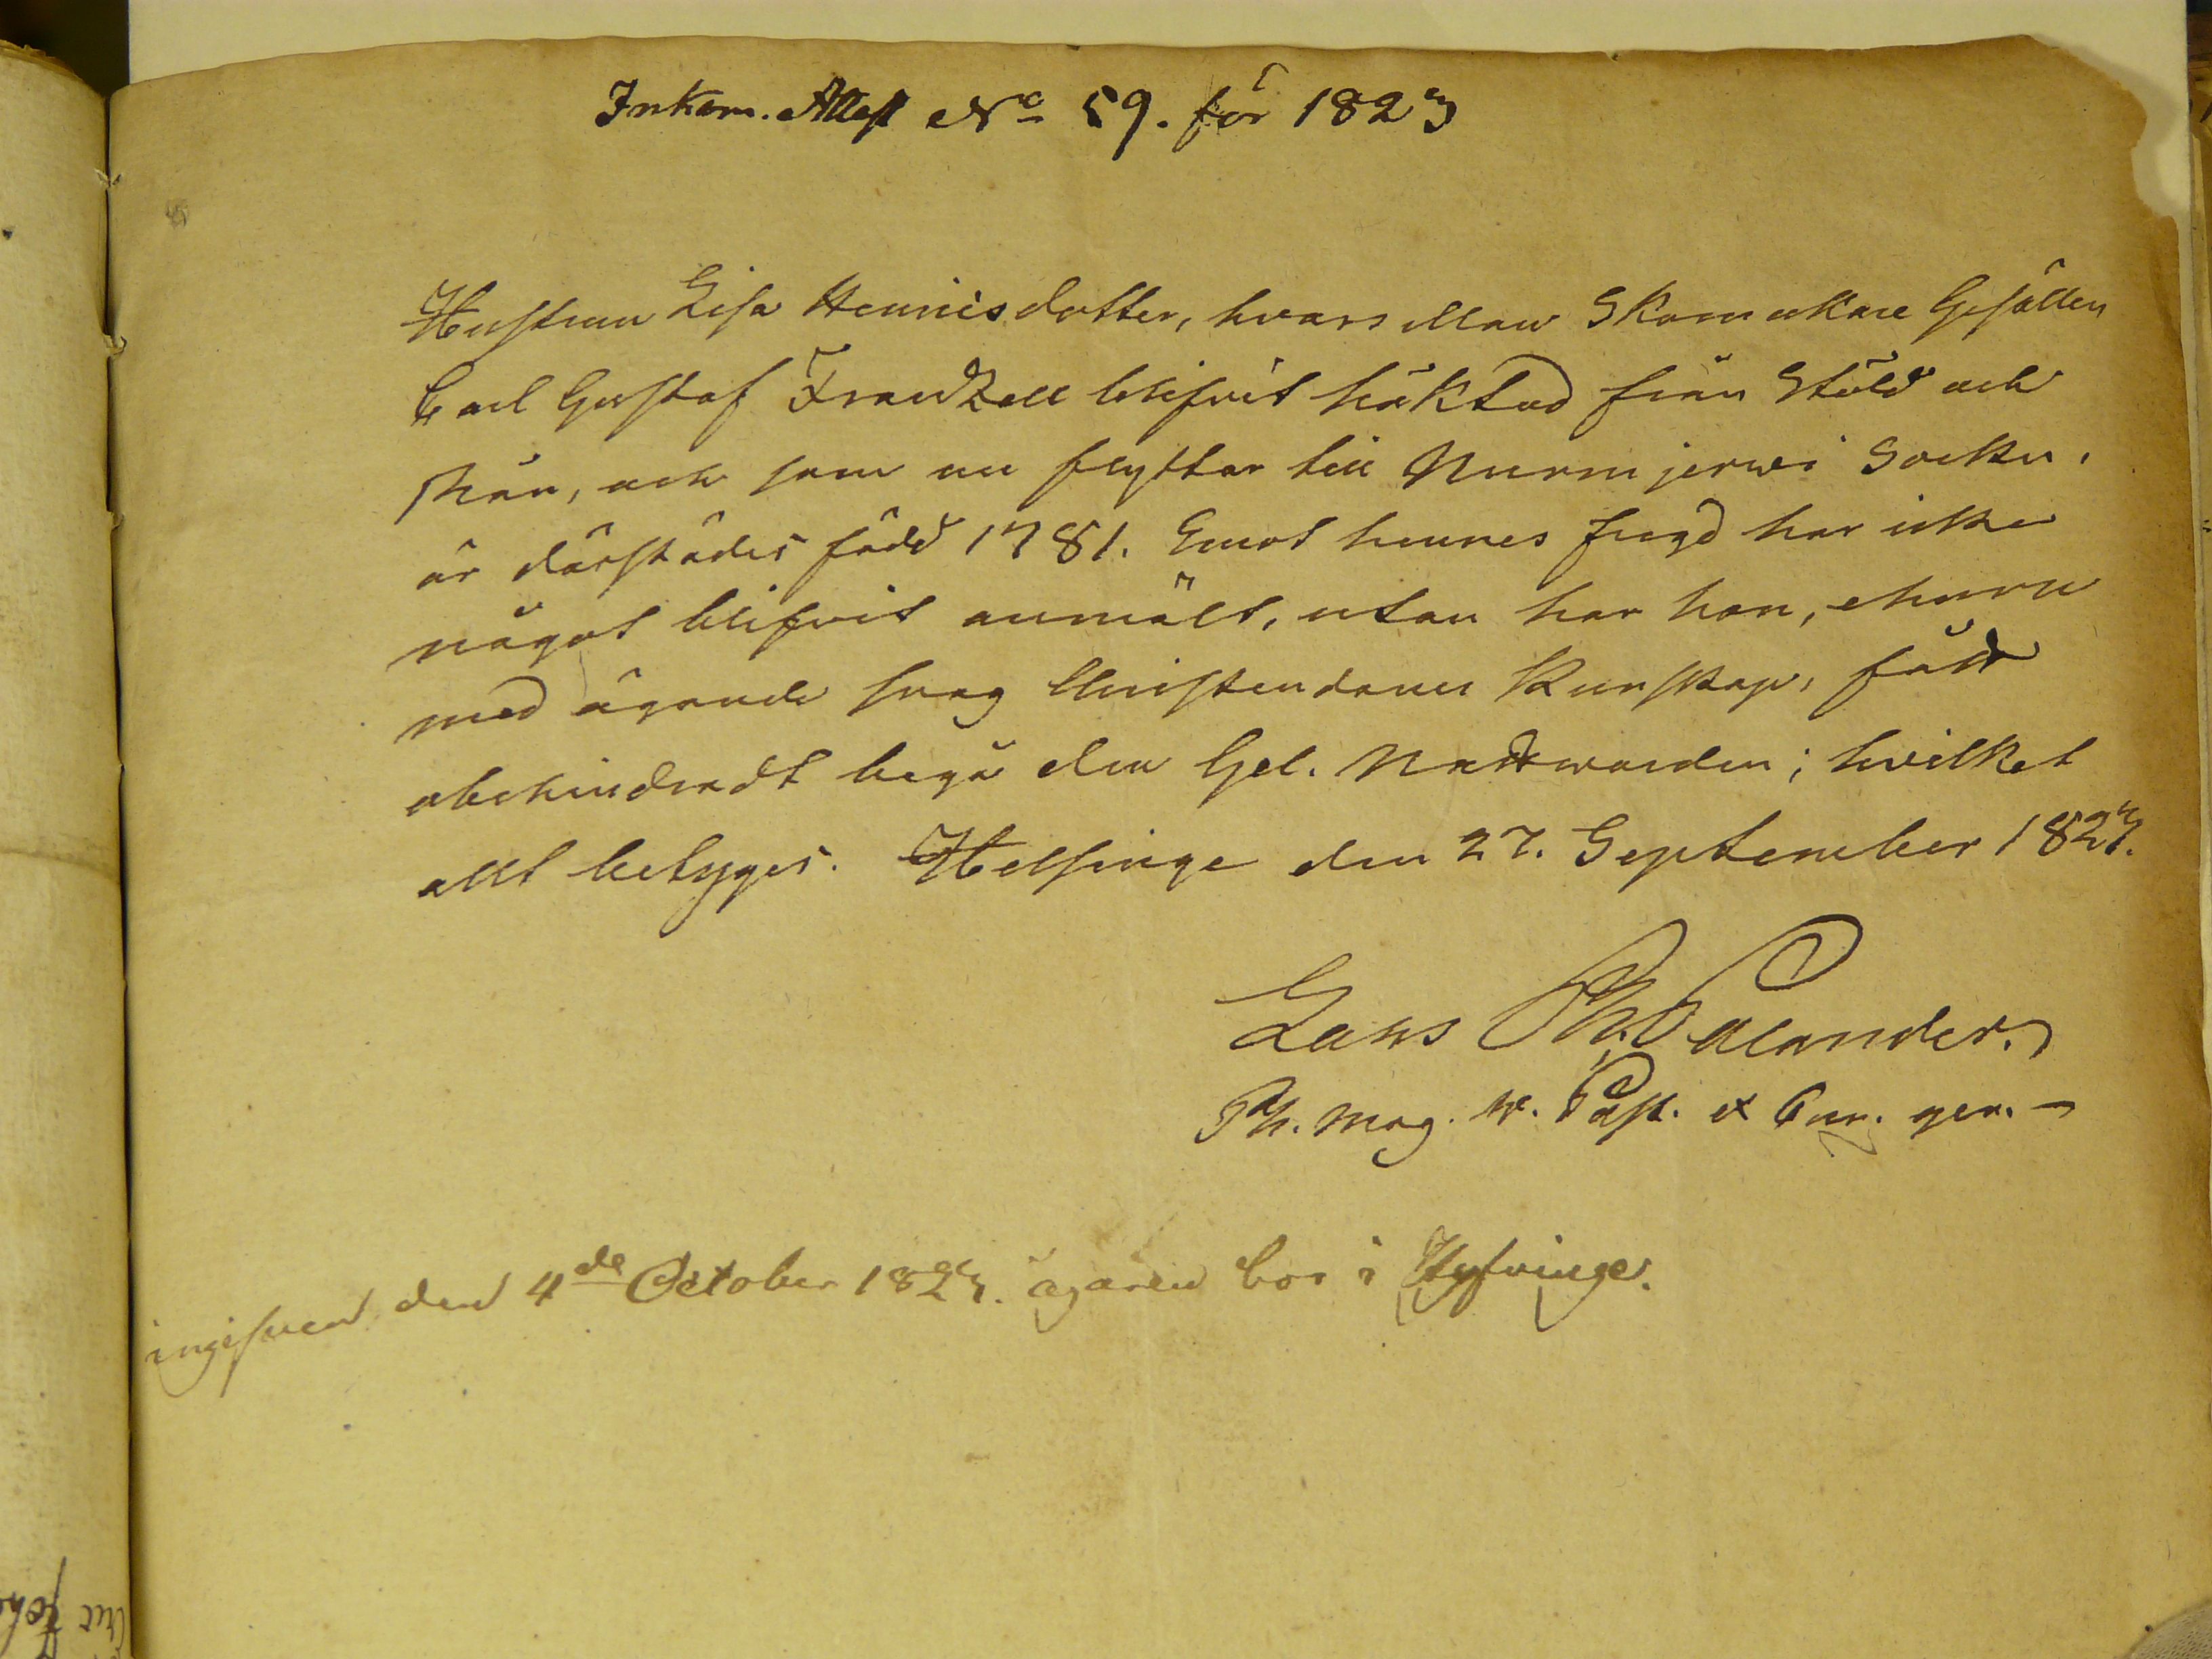 Inkom. Attest No 59. för 1823
Hustrun Lisa Hennisdotter, hvars Man Skomakare Gesällen
Carl Gustaf Frantzell blifvit häktad från Säld och
Skän, och som nu flyttar till Nurmijerwi Sockn,
är därstädes född 1781. Emot hennes fregd har icke
något blifvit anmält, utan har hon, ehuru
med ägande svag Christendoms Kunskap, fådt
obehindradt begå den Hel. Nattwarden; hvilket
allt betyges. Helsinge den 27. September 1823.
Lars Palander.
Ph. Mag. v. Past. et Cur. ger.
ingifven den 4de October 1823. ägaren bor i Hyfvinge.